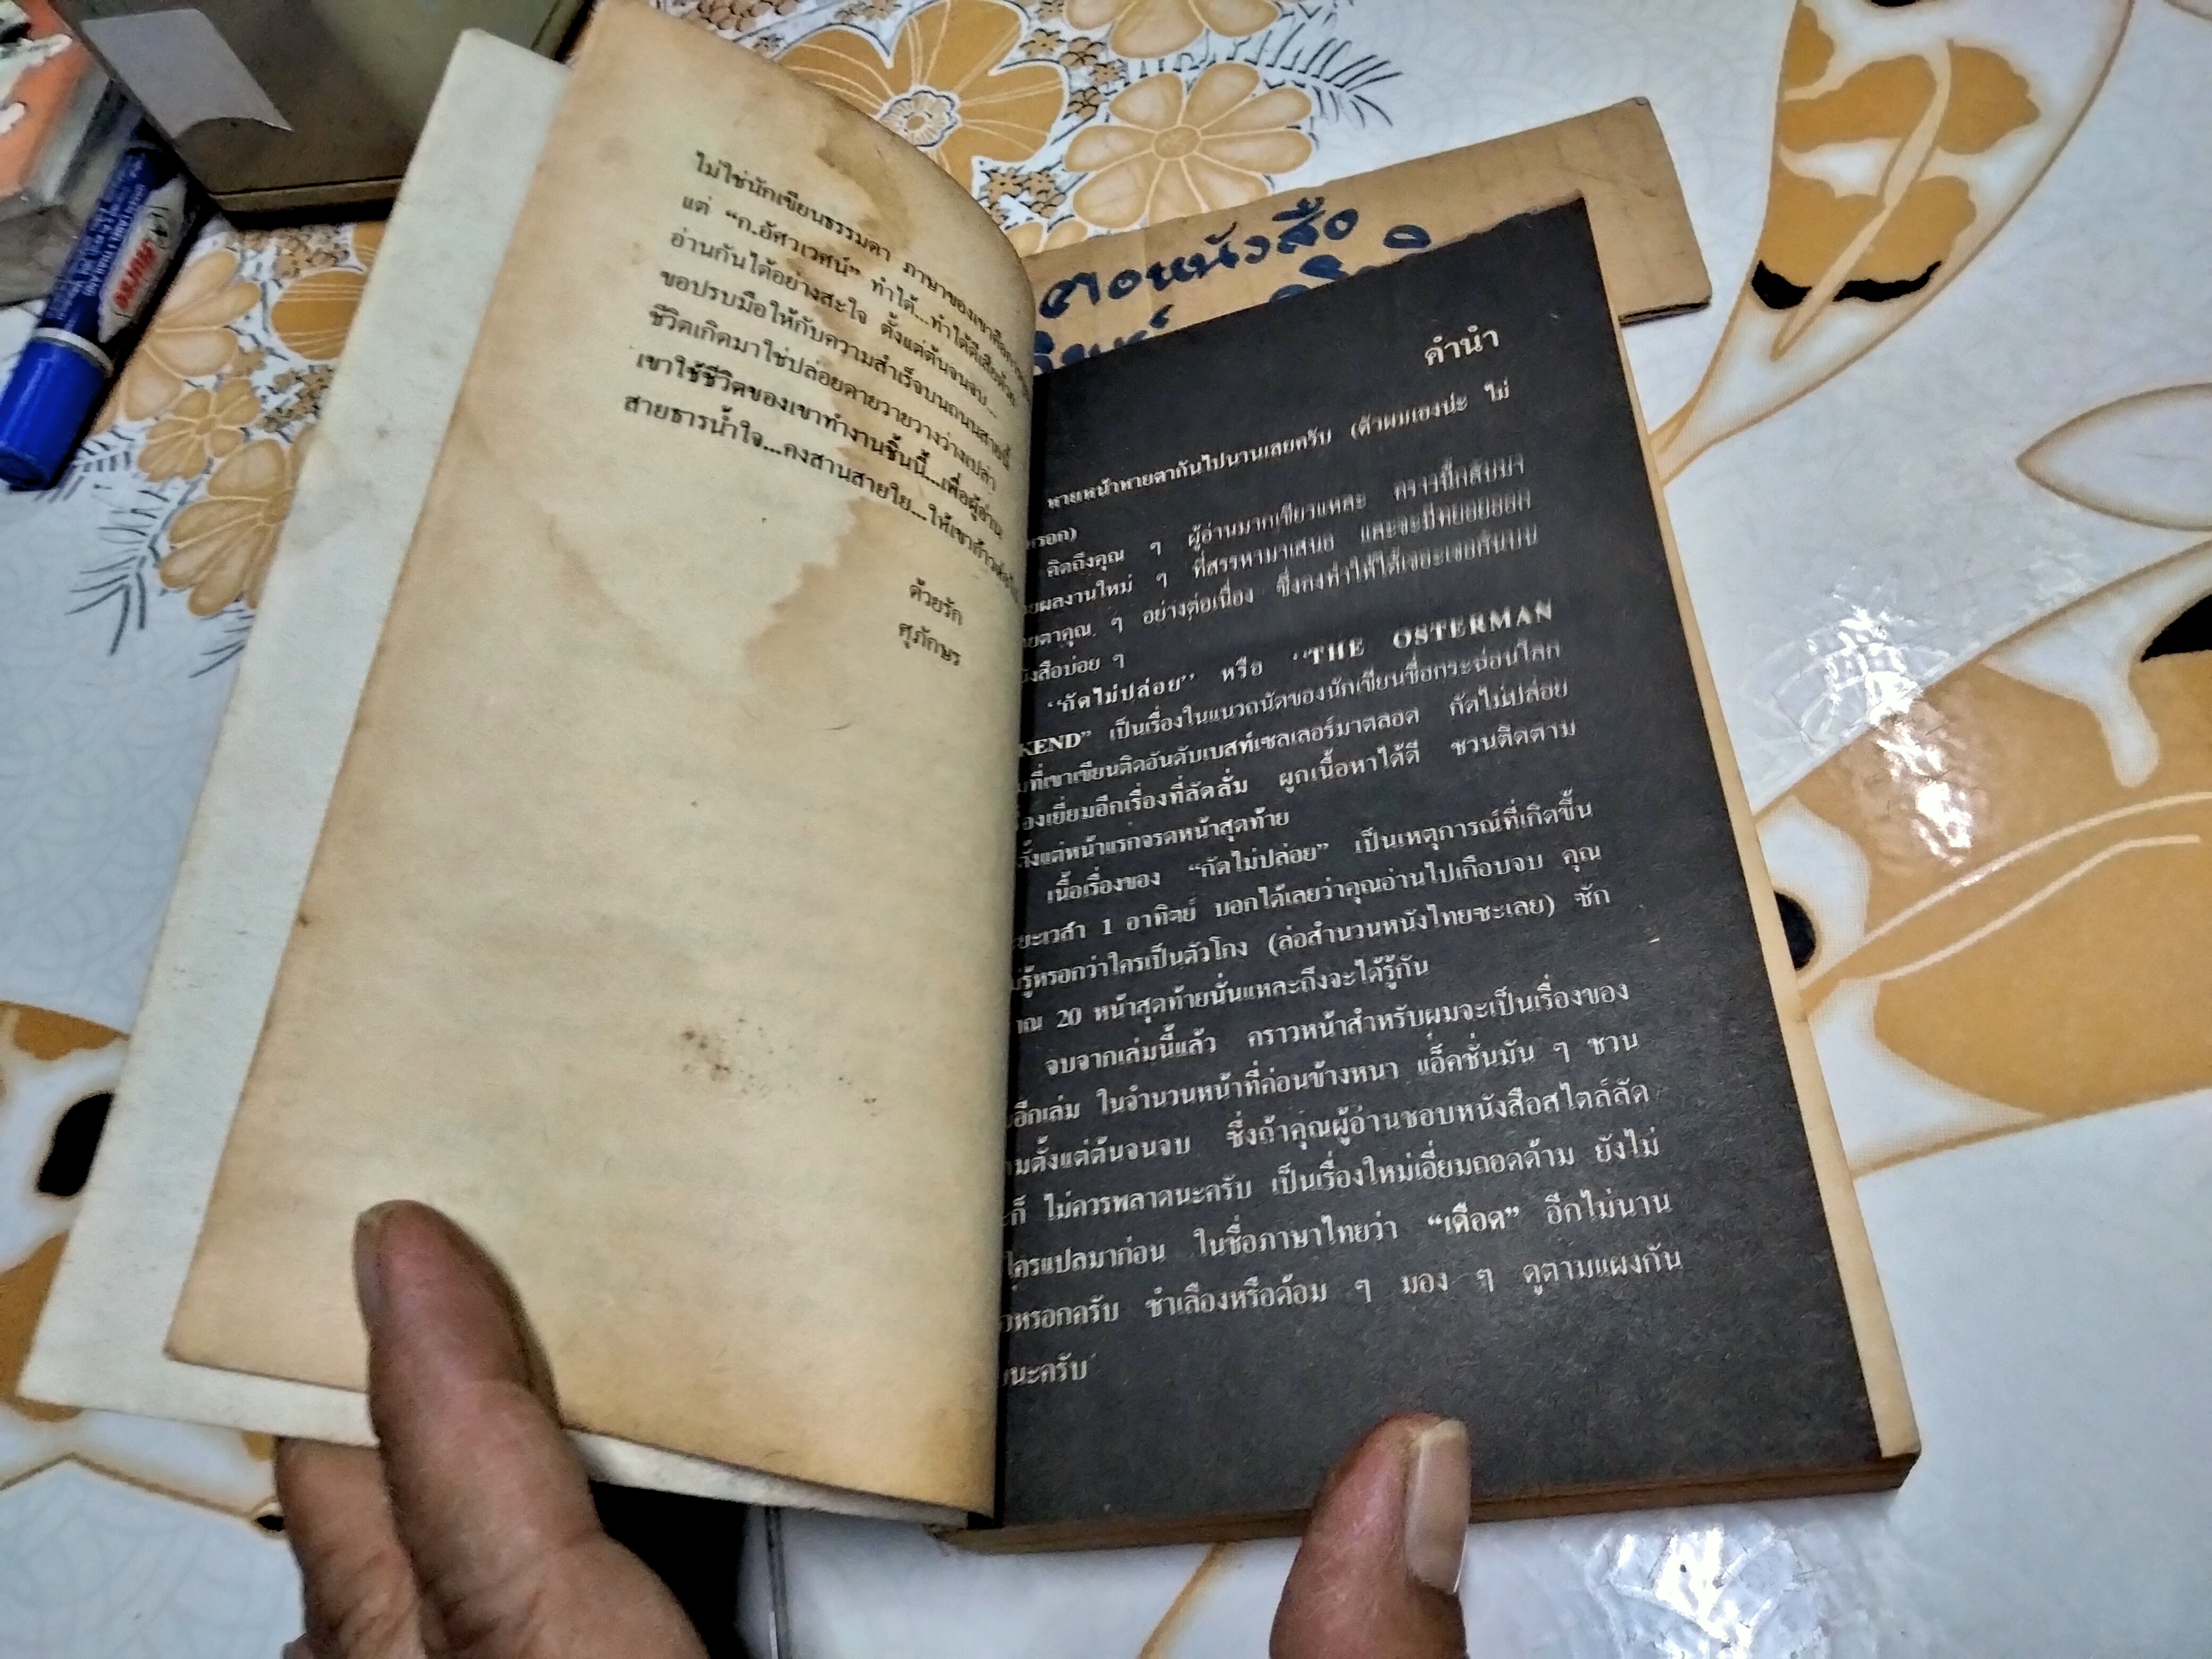 ไม่ใช่นักเขียนธรรมดา ภาษาของเขาคือ
แต่ “ก.อัศวเวศน์” ทำได้...ทำได้ดีเสียด้วย
อ่านกันได้อย่างสะใจ ตั้งแต่ต้นจนจบ...
ขอปรบมือให้กับความสำเร็จบนถนนสายนี้
ชีวิตเกิดมาใช่ปล่อยดายวายวางว่างเปล่า
เขาใช้ชีวิตของเขาทำงานชิ้นนี้...เพื่อผู้อ่าน
สายธารน้ำใจ...คงสานสายใย...ให้เขาก้าวต่อไป
ด้วยรัก
ศุภักษร
ขอหนังสือ
คำนำ
หายหน้าหายตากันไปนานเลยครับ (ตัวผมเองน่ะ ไม่
หรอก)
คิดถึงคุณ ๆ ผู้อ่านมากเชียวแหละ คราวนี้กลับมา
ผลงานใหม่ ๆ ที่สรรหามาเสนอ และจะมีทยอยออก
ตาคุณ ๆ อย่างต่อเนื่อง ซึ่งคงทำให้ได้เจอะเจอกันบน
สือบ่อย ๆ
“กัดไม่ปล่อย” หรือ “THE OSTERMAN
KEND” เป็นเรื่องในแนวถนัดของนักเขียนชื่อกระฉ่อนโลก
ที่เขาเขียนติดอันดับเบสท์เซลเลอร์มาตลอด กัดไม่ปล่อย
เยี่ยมอีกเรื่องที่ลัดลั่ม ผูกเนื้อหาได้ดี ชวนติดตาม
ตั้งแต่หน้าแรกจรดหน้าสุดท้าย
เนื้อเรื่องของ “กัดไม่ปล่อย” เป็นเหตุการณ์ที่เกิดขึ้น
ยะเวลา 1 อาทิตย์ บอกได้เลยว่าคุณอ่านไปเกือบจบ คุณ
รู้หรอกว่าใครเป็นตัวโกง (ล่อสำนวนหนังไทยซะเลย) ซัก
าณ 20 หน้าสุดท้ายนั่นแหละถึงจะได้รู้กัน
จบจากเล่มนี้แล้ว คราวหน้าสำหรับผมจะเป็นเรื่องของ
อีกเล่ม ในจำนวนหน้าที่ค่อนข้างหนา แอ็คชั่นมัน ๆ ชวน
มตั้งแต่ต้นจนจบ ซึ่งถ้าคุณผู้อ่านชอบหนังสือสไตล์ลัด
ก็ ไม่ควรพลาดนะครับ เป็นเรื่องใหม่เอี่ยมถอดด้าม ยังไม่
ใครแปลมาก่อน ในชื่อภาษาไทยว่า “เดือด” อีกไม่นาน
หรอกครับ ชำเลืองหรือด้อม ๆ มอง ๆ ดูตามแผงกัน
นะครับ